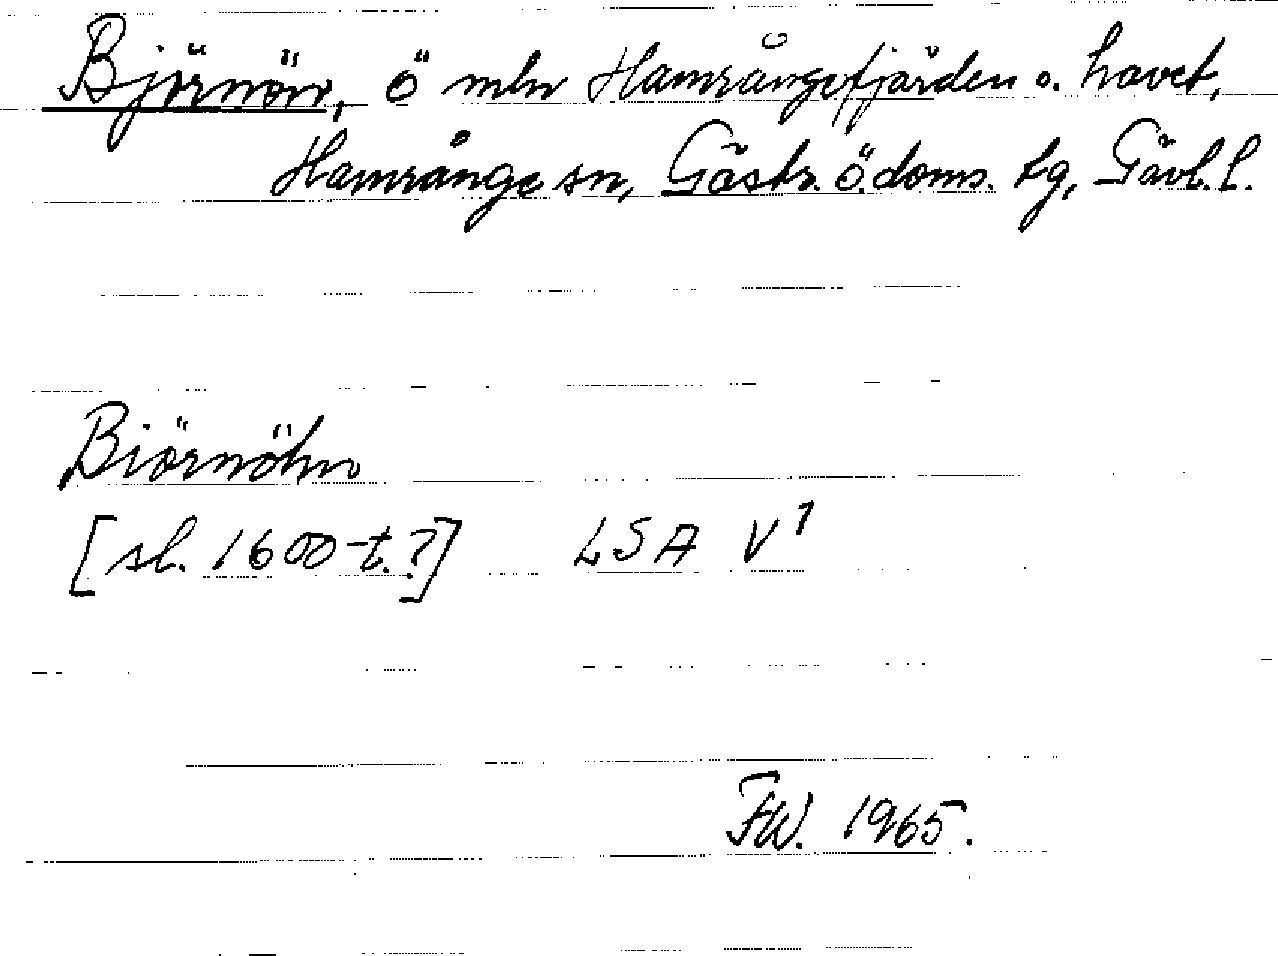 Björnön, ö mln Hamrångefjärden o. havet,
Hamrånge sn, Gästr. ö. doms. tg, Gävl. l.
Biörnöhn
[sl. 1600-t.?] LSA V¹
FW. 1965.